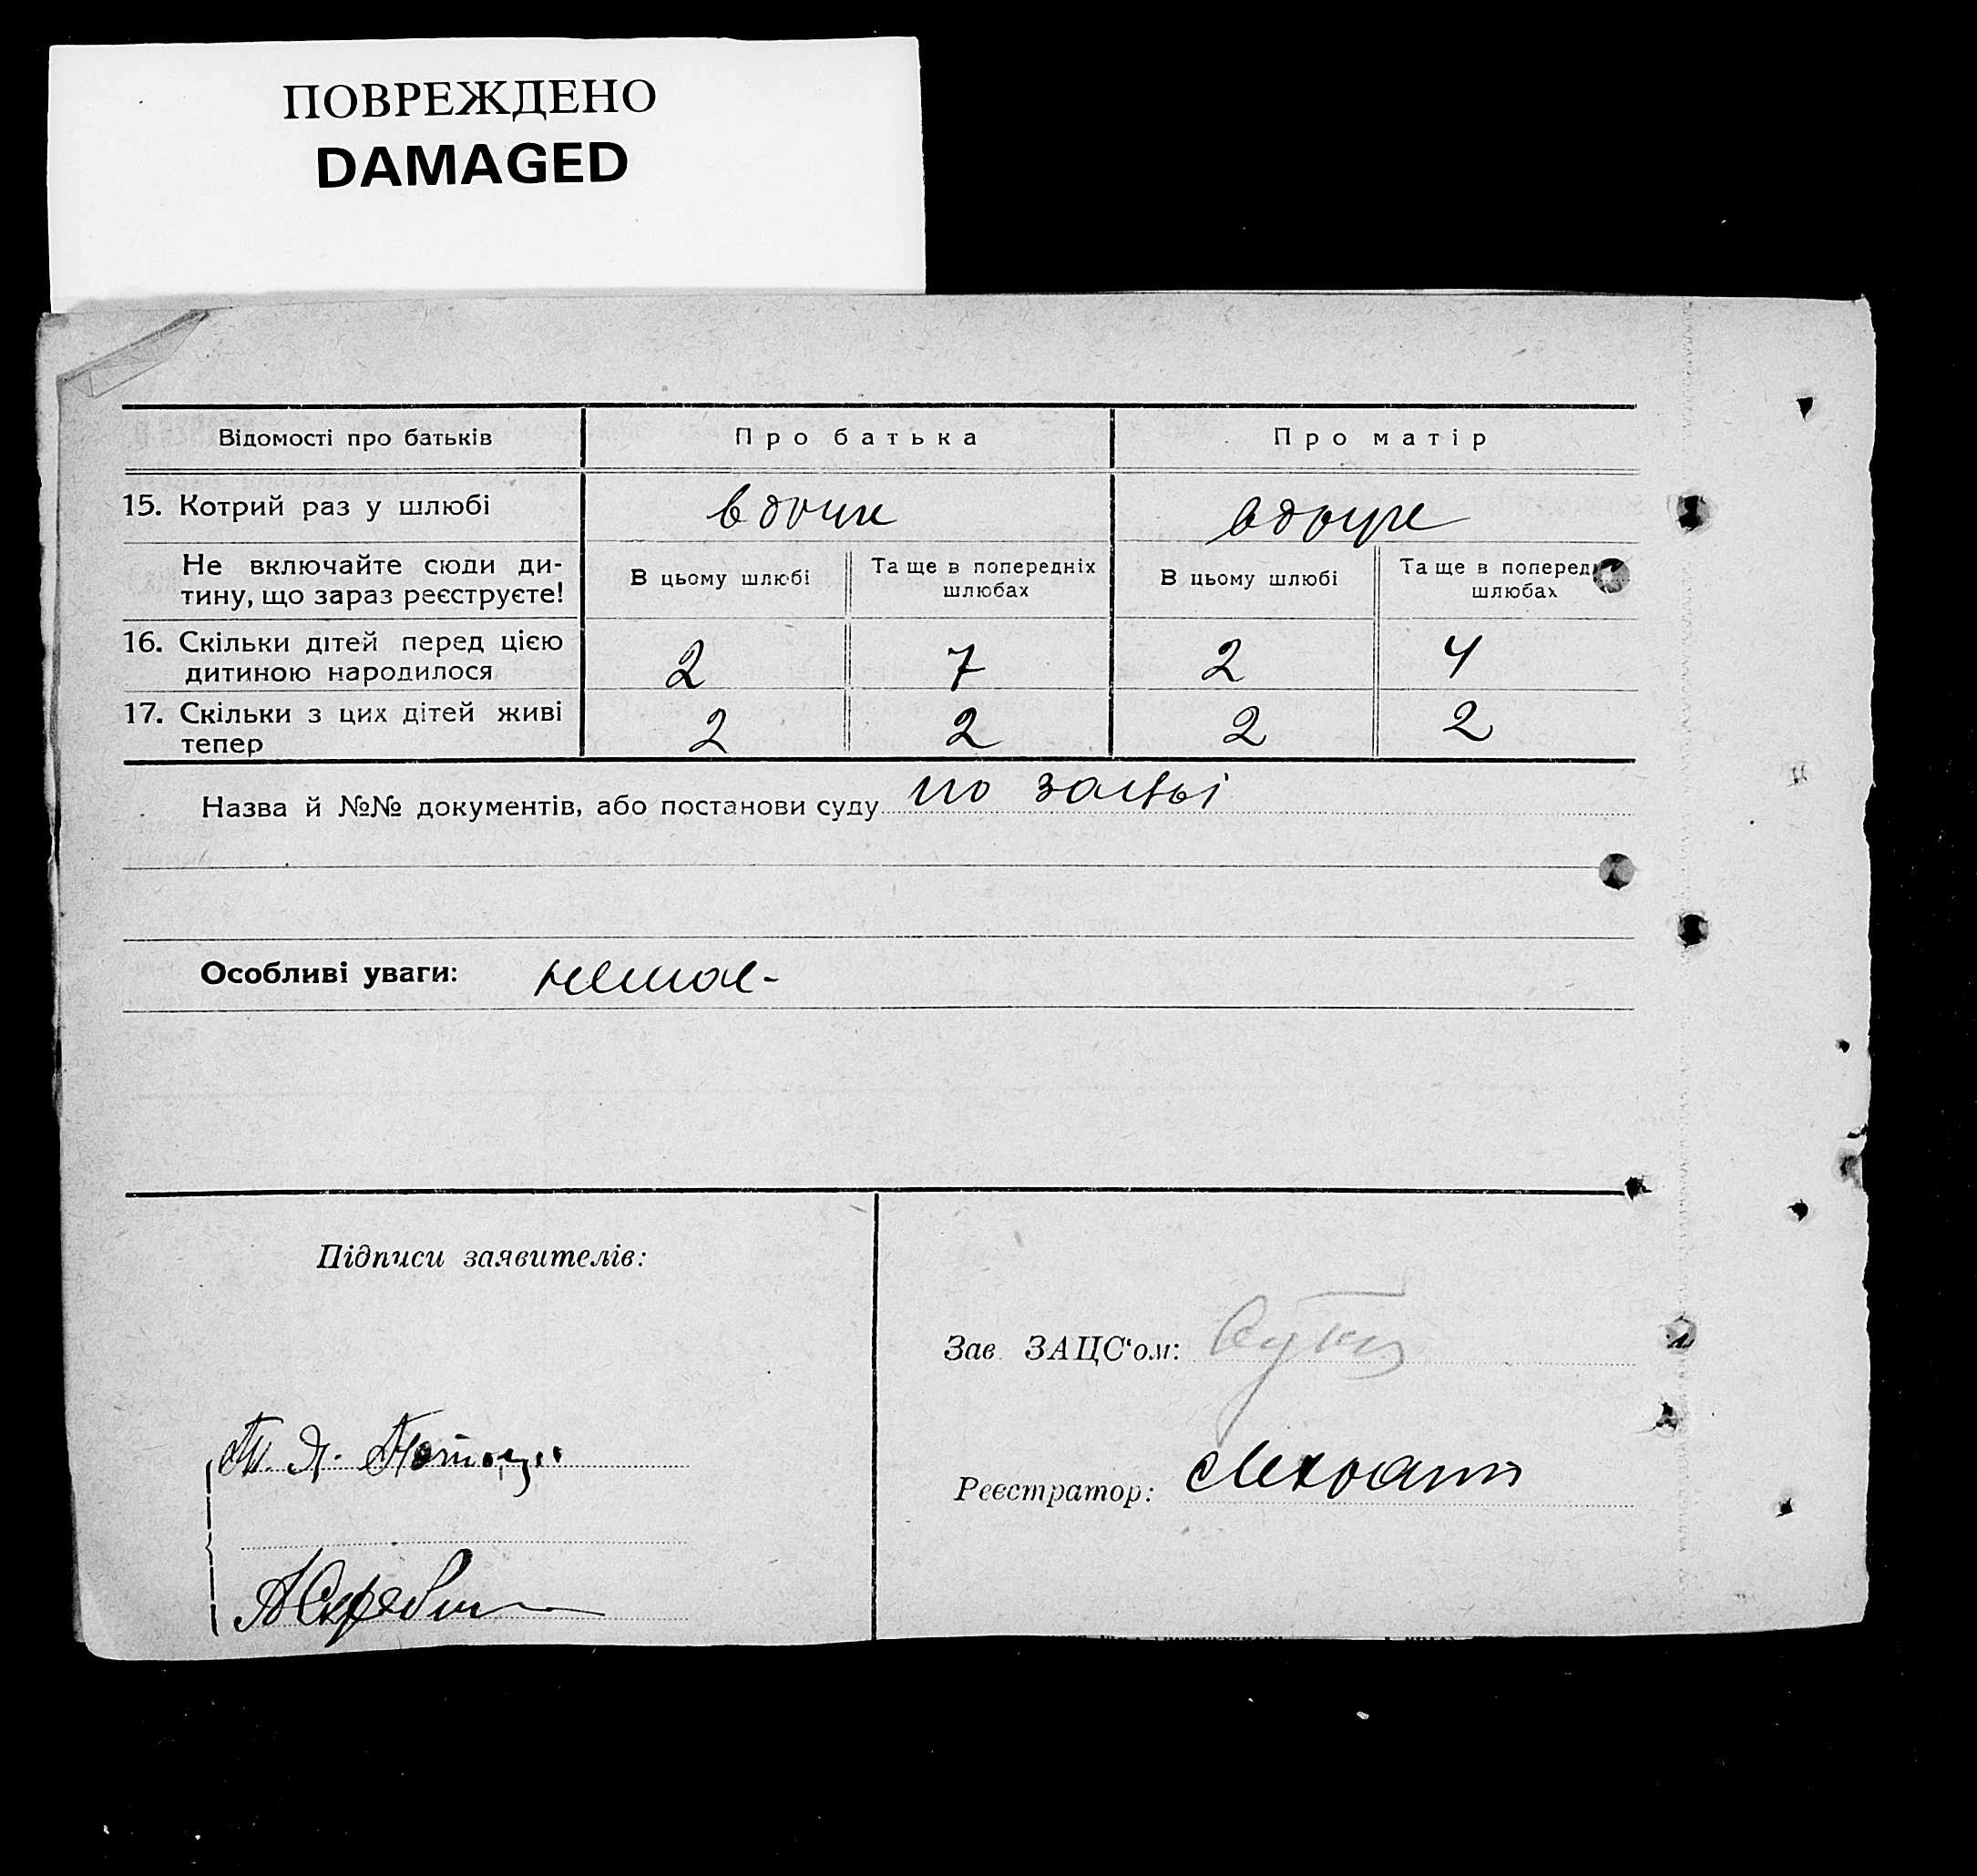 ПОВРЕЖДЕНО
DAMAGED
Відомості про батьків
Про батька
Про матір
15. Котрий раз у шлюбі
вдруге
Не включайте сюди ди-
тину, що зараз реєструєте!
В цьому шлюбі
Та ще в попередніх
шлюбах
В цьому шлюбі
Та ще в поперед
шлюбах
16. Скільки дітей перед цією
дитиною народилося
2
7
2
4
17. Скільки з цих дітей живі
тепер
2
2
2
2
Назва й №№ документів, або постанови суду по заяві
Особливі уваги: немає-
Підписи заявителів:
Зав ЗАЦС‘ом:
Реєстратор: